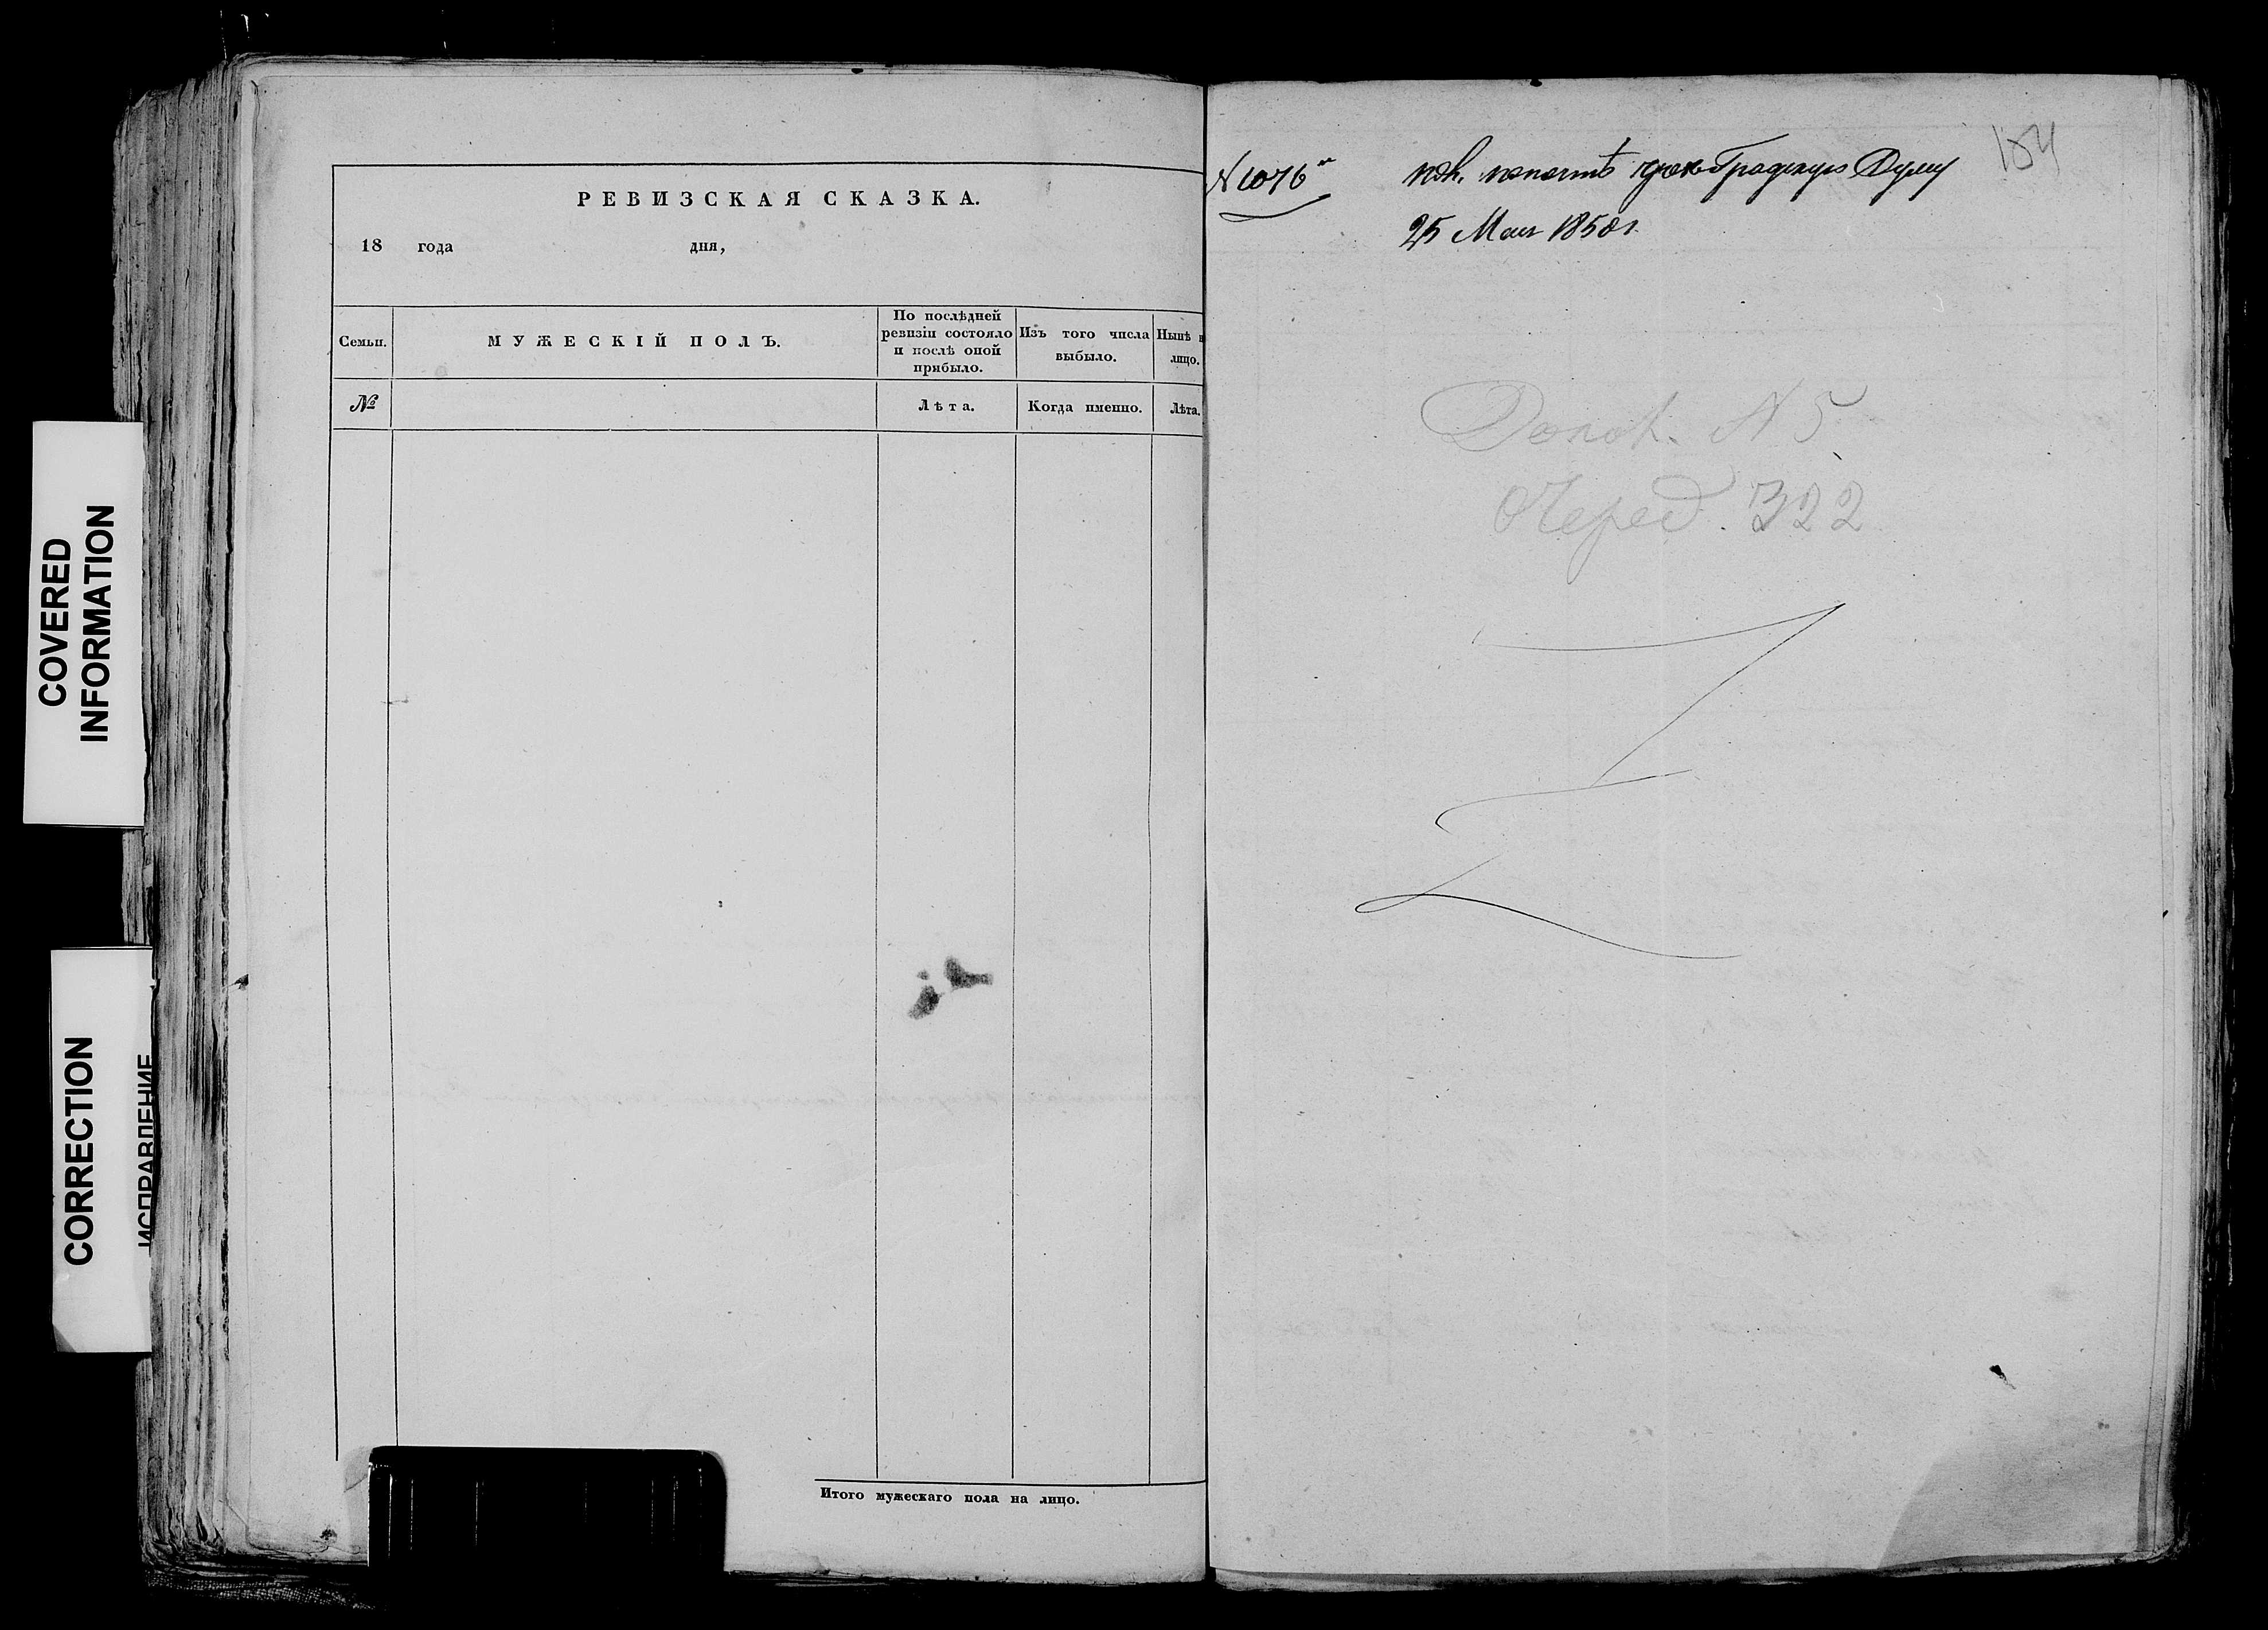 COVERED
INFORMATION
CORRECTION
ИСПРАВЛЕНИЕ
РЕВИЗСКАЯ СКАЗКА.
18 года дня,
Семьи.
МУЖЕСКІЙ ПОЛЪ.
По послѣдней
ревизіи состояло
и послѣ оной
прибыло.
Изъ того числа
выбыло.
Нынѣ н
лицо.
№
Лѣта.
Когда именно.
Лѣта.
Итого мужескаго пола на лицо.
N 1076
Градскую Думу
184
25 Мая 1850 г
Допол. N 5
Черед. 322